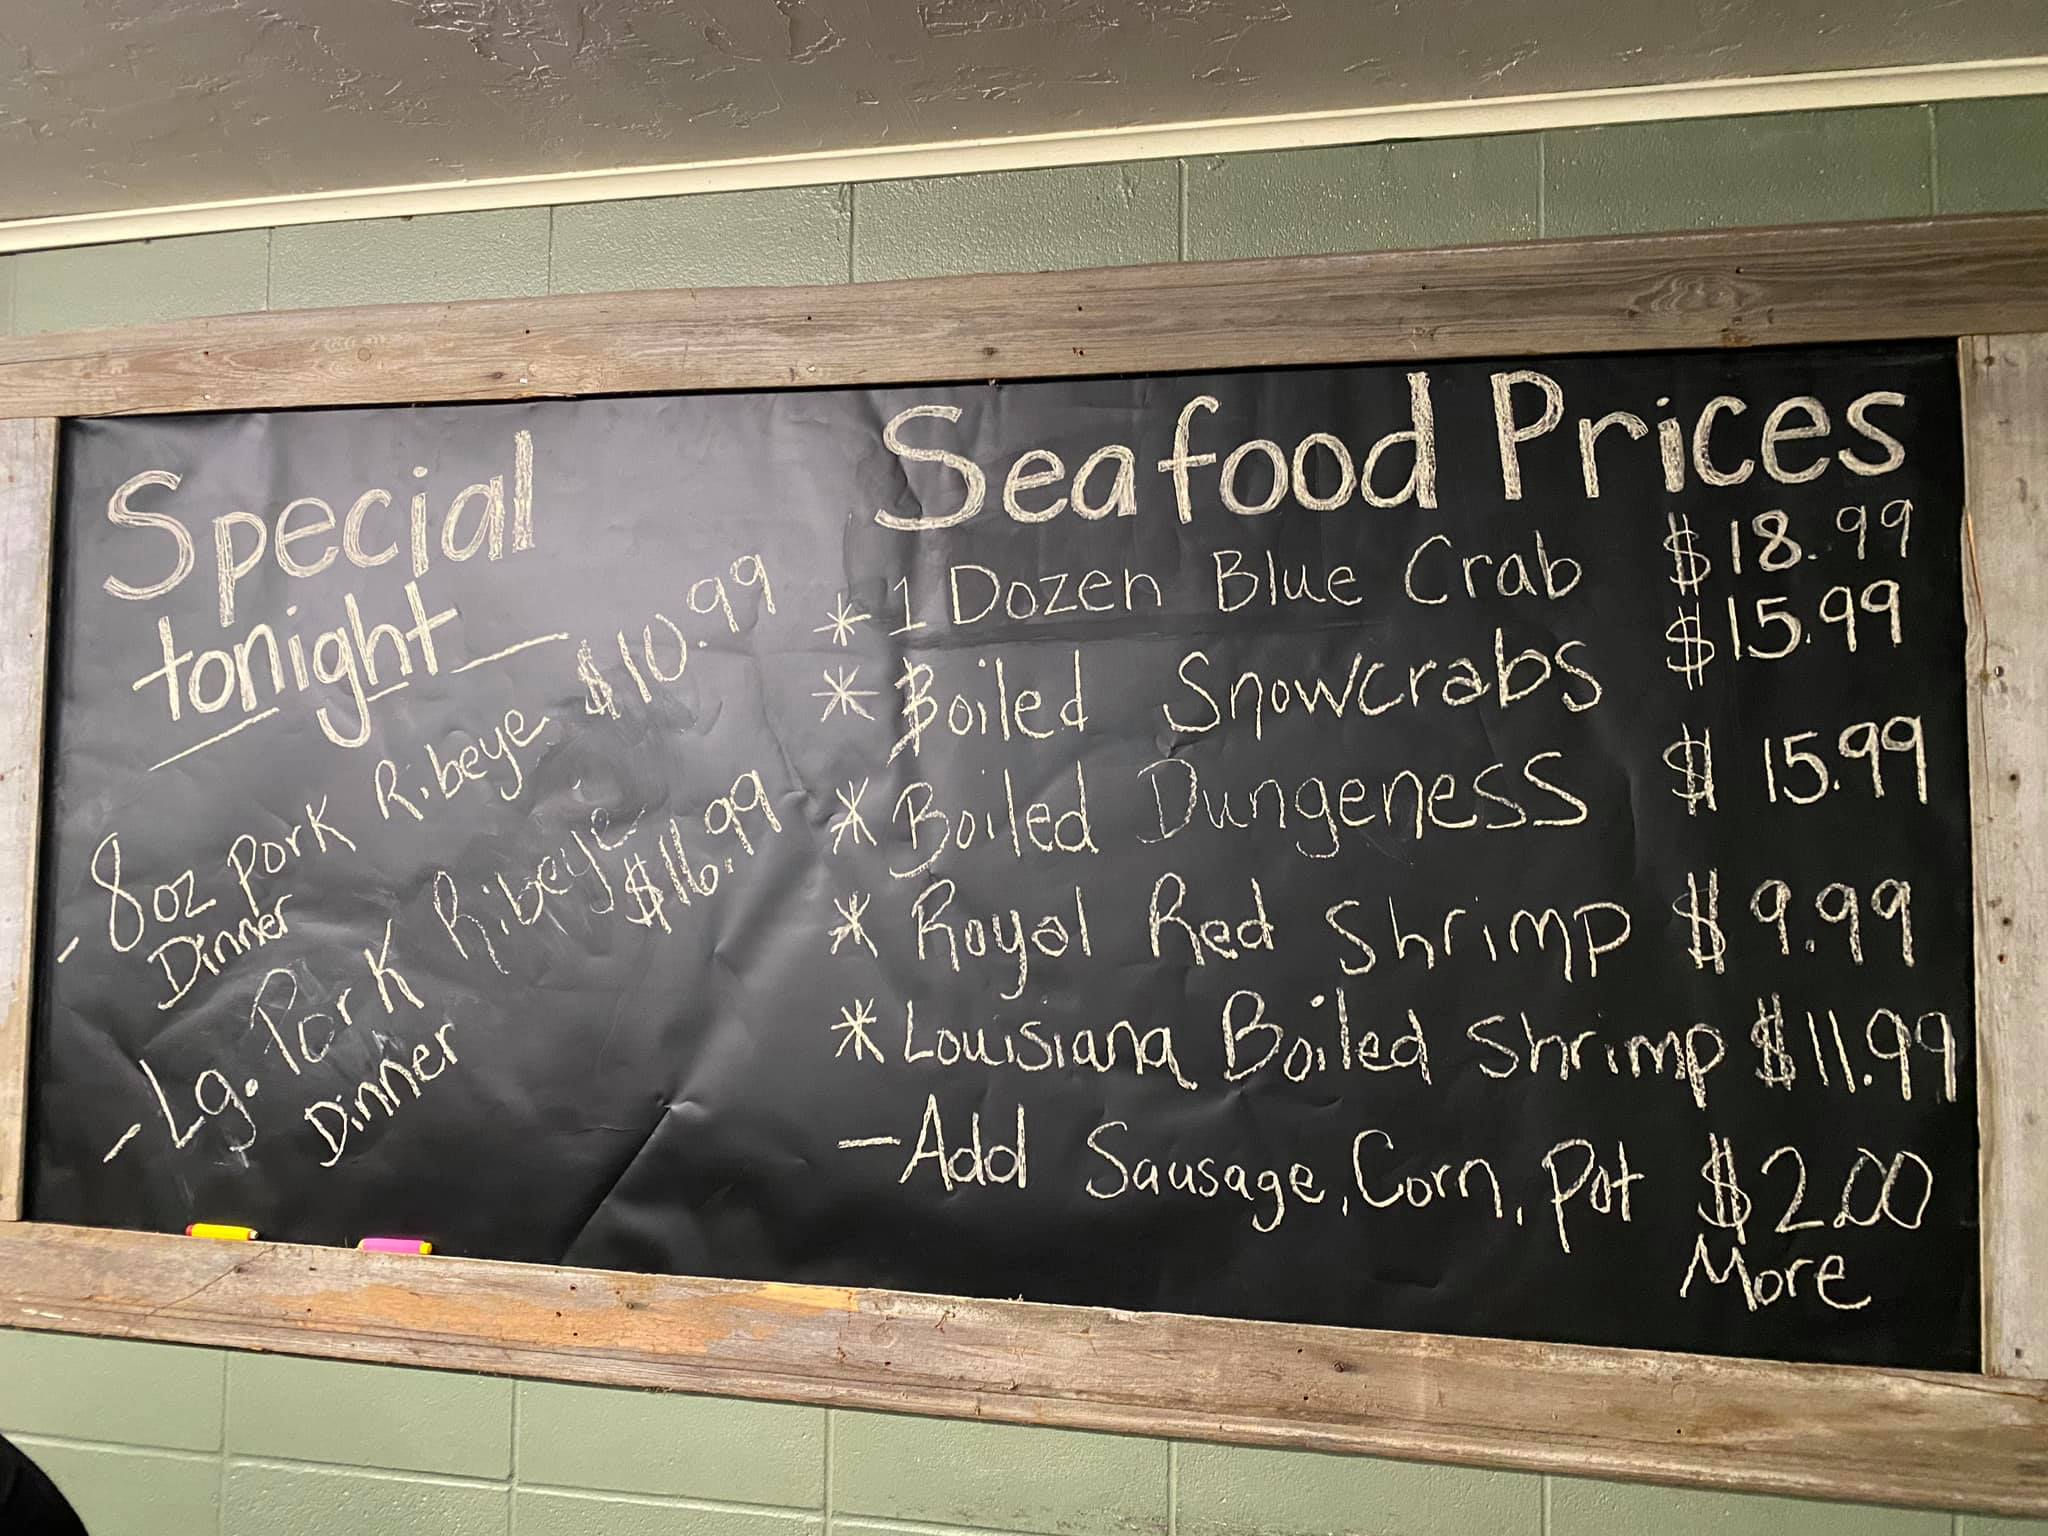 Special
tonight
- 8oz Pork Ribeye $10.99
Dinner
- Lg. Pork Ribeye
$16.99
Dinner
Seafood Prices
* 1 Dozen Blue Crab $18.99
* Boiled Snowcrabs $15.99
* Boiled Dungeness $15.99
* Royal Red Shrimp $9.99
* Louisiana Boiled Shrimp $11.99
- Add Sausage, Corn, Pot $2.00
More